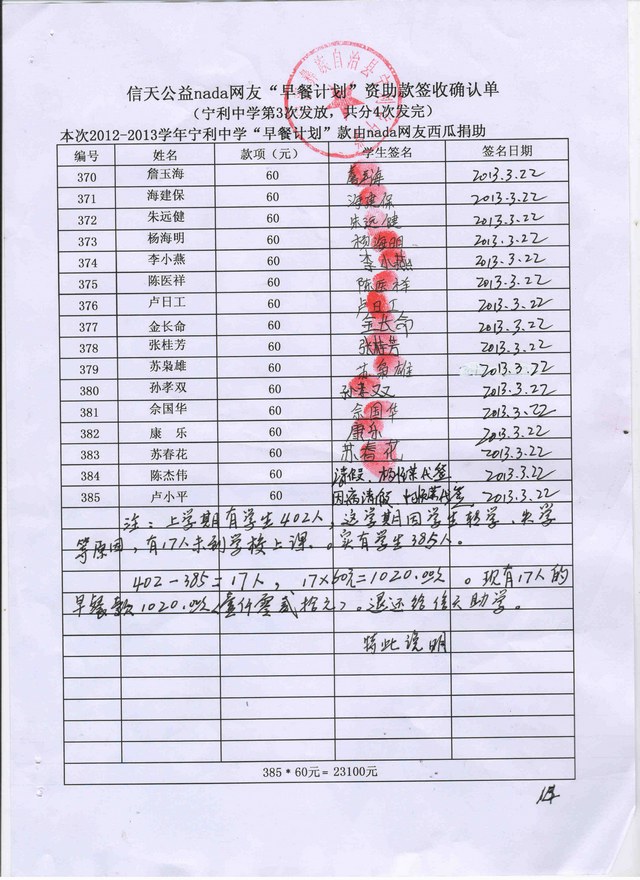 信天公益nada网友“早餐计划”资助款签收确认单
(宁利中学第3次发放，共分4次发完)
本次2012-2013学年宁利中学“早餐计划”款由nada网友西瓜捐助
编号 姓名 款项（元） 学生签名 签名日期
370 詹玉海 60 詹玉海 2013.3.22
371 海建保 60 海建保 2013.3.22
372 朱远健 60 朱远健 2013.3.22
373 杨海明 60 杨海明 2013.3.22
374 李小燕 60 李小燕 2013.3.22
375 陈医祥 60 陈医祥 2013.3.22
376 卢日工 60 卢日工 2013.3.22
377 金长命 60 金长命 2013.3.22
378 张桂芳 60 张桂芳 2013.3.22
379 苏枭雄 60 苏枭雄 2013.3.22
380 孙孝双 60 孙孝双 2013.3.22
381 佘国华 60 佘国华 2013.3.22
382 康 乐 60 康乐 2013.3.22
383 苏春花 60 苏春花 2013.3.22
384 陈杰伟 60 请假，杨 代签 2013.3.22
385 卢小平 60 因病请假 代签 2013.3.22
注：上学期有学生402人，这学期因学生转学，失学
等原因，有17人未到学校上课。实有学生385人。
402-385=17人，17×60元=1020.00元。现有17人的
早餐款1020.00元（壹仟零贰拾元）。退还给信天助学。
特此说明
385*60元=23100元